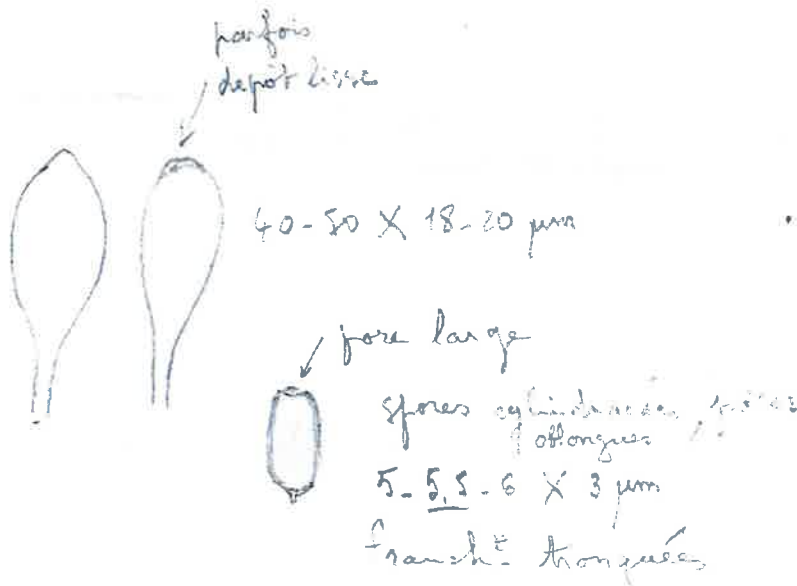 parfois
depôt lisse
40-50 X 18-20 µm
pore large
spores cylindracées,
oblongues
5-5,5-6 X 3 µm
franch^t tronquées